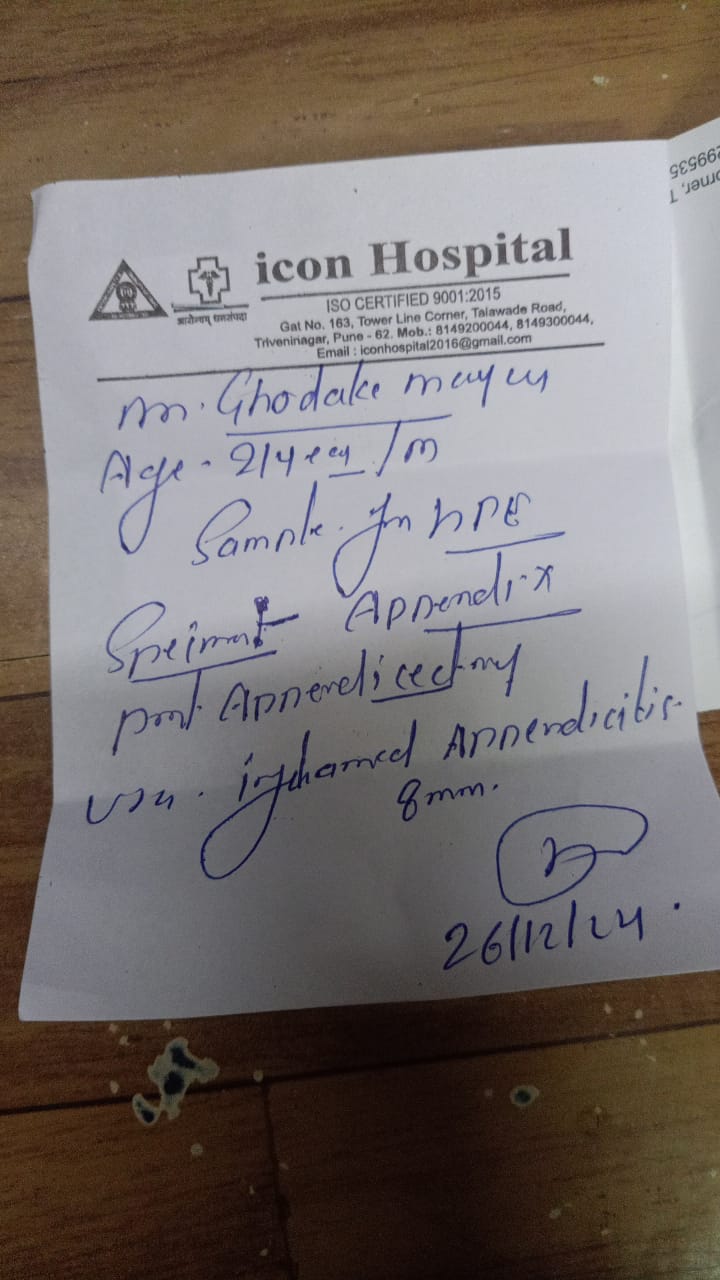 आरोग्यम् धनसंपदा
icon Hospital
ISO CERTIFIED 9001:2015
Gat No. 163, Tower Line Corner, Talawade Road,
Triveninagar, Pune - 62. Mob.: 8149200044, 8149300044,
Email : iconhospital2016@gmail.com
299535
orner, T
Ghodake
Age - 21 year / M
Sample for HPE
Appendix
post Appendicectomy
USG. inflamed Appendicitis
8mm.
26/12/24.